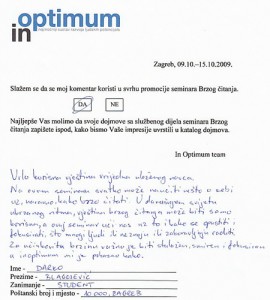 in optimum
Zagreb, 09.10.–15.10.2009.
Slažem se da se moj komentar koristi u svrhu promocije seminara Brzog čitanja.
DA NE
Najljepše Vas molimo da svoje dojmove sa službenog dijela seminara Brzog
čitanja zapišete ispod, kako bismo Vaše impresije uvrstili u katalog dojmova.
In Optimum team
Vrlo korisna vještina vrijedna uloženog novca.
Na ovom seminaru svatko može naučiti nešto o sebi
brzo čitati. U današnjem svijetu
ubrzanog ritma, vještina brzog čitanja može biti samo
korisna, a ovaj seminar uči nas uz to i kako se opustiti i
fokusirati, što mnogi ljudi ne znaju ili zaboravljaju raditi.
Za učinkovitu brzinu važno je biti staložen, smiren i fokusiran
a inoptimum mi je pokazao kako.
Ime - DARKO
Prezime - BLAGIJEVIĆ
Zanimanje - STUDENT
Poštanski broj i mjesto - 10.000 ZAGREB